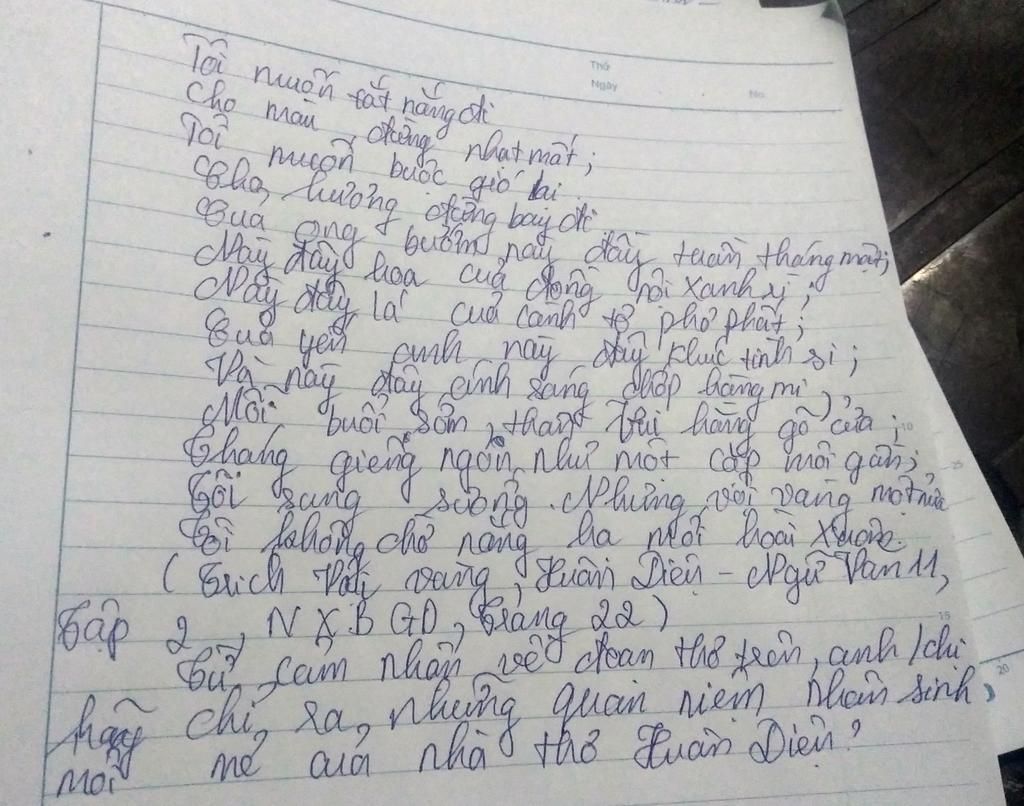 Thứ
Ngày
No.
Tôi muốn tắt nắng đi
Cho màu đừng nhạt mất;
Tôi muốn buộc gió lại
Cho hương đừng bay đi
Của ong bướm này đây tuần tháng mật;
Này đây hoa của đồng nội xanh rì;
Này đây lá của cành tơ phơ phất;
Của yến anh này đây khúc tình si;
Và này đây ánh sáng chớp hàng mi,
Mỗi buổi sớm, thần Vui hằng gõ cửa;
Tháng giêng ngon như một cặp môi gần;
Tôi sung sướng. Nhưng vội vàng một nửa
Tôi không chờ nắng hạ mới hoài Xuân.
(Trích Vội vàng, Xuân Diệu - Ngữ Văn 11,
Tập 2, NXBGD, Trang 22)
Từ cảm nhận về đoạn thơ trên, anh/chị
hãy chỉ ra những quan niệm nhân sinh
mới mẻ của nhà thơ Xuân Diệu?
10
15
20
25